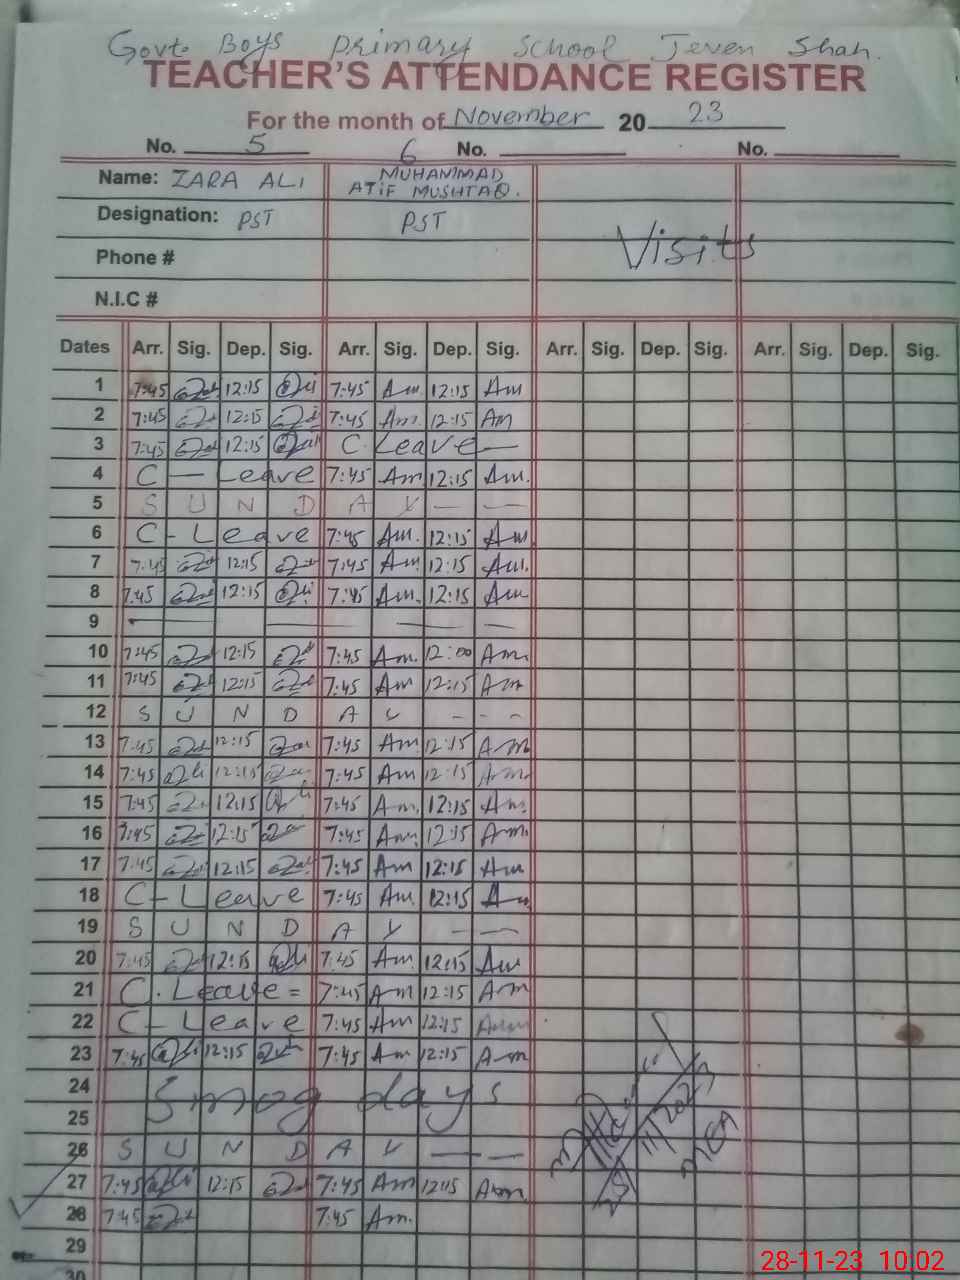 Govt. Boys Primary School Jeven Shah.
TEACHER'S ATTENDANCE REGISTER
For the month of November 20 23
No. 5 6 No. No.
Name: ZARA ALI MUHAMMAD ATIF MUSHTAQ.
Designation: PST PST
Visits
Phone #
N.I.C #
Dates Arr. Sig. Dep. Sig. Arr. Sig. Dep. Sig. Arr. Sig. Dep. Sig. Arr. Sig. Dep. Sig.
1 7:45 12:15 Ali 7:45 Am 12:15 Am
2 7:45 12:15 7:45 Am. 12:15 Am
3 7:45 12:15 C. Leave —
4 C — Leave 7:45 Am 12:15 Am.
5 S U N D A Y — —
6 C - Leave 7:45 Am. 12:15 Am
7 7:45 12:15 7:45 Am 12:15 Am.
8 7:45 12:15 Ali 7:45 Am. 12:15 Am
9 — — — —
10 7:45 12:15 7:45 Am. 12:00 Am.
11 7:45 12:15 7:45 Am 12:15 Am
12 S U N D A Y - - -
13 7:45 12:15 7:45 Am 12:15 Am
14 7:45 Ali 12:15 7:45 Am 12:15 Am
15 7:45 12:15 Ali 7:45 Am. 12:15 Am.
16 7:45 12:15 7:45 Am. 12:15 Am.
17 7:45 12:15 7:45 Am 12:15 Am
18 C - Leave 7:45 Am. 12:15 Am
19 S U N D A Y — —
20 7:45 12:15 Ali 7:45 Am 12:15 Am
21 C. Leave = 7:45 Am 12:15 Am
22 C - Leave 7:45 Am 12:15 Am
23 7:45 Ali 12:15 7:45 Am 12:15 Am
24 Smog days
25
26 S U N D A Y — —
27 7:45 Ali 12:15 7:45 Am 12:15 Am
28 7:45 7:45 Am.
29
30
MEA
28-11-23 10:02